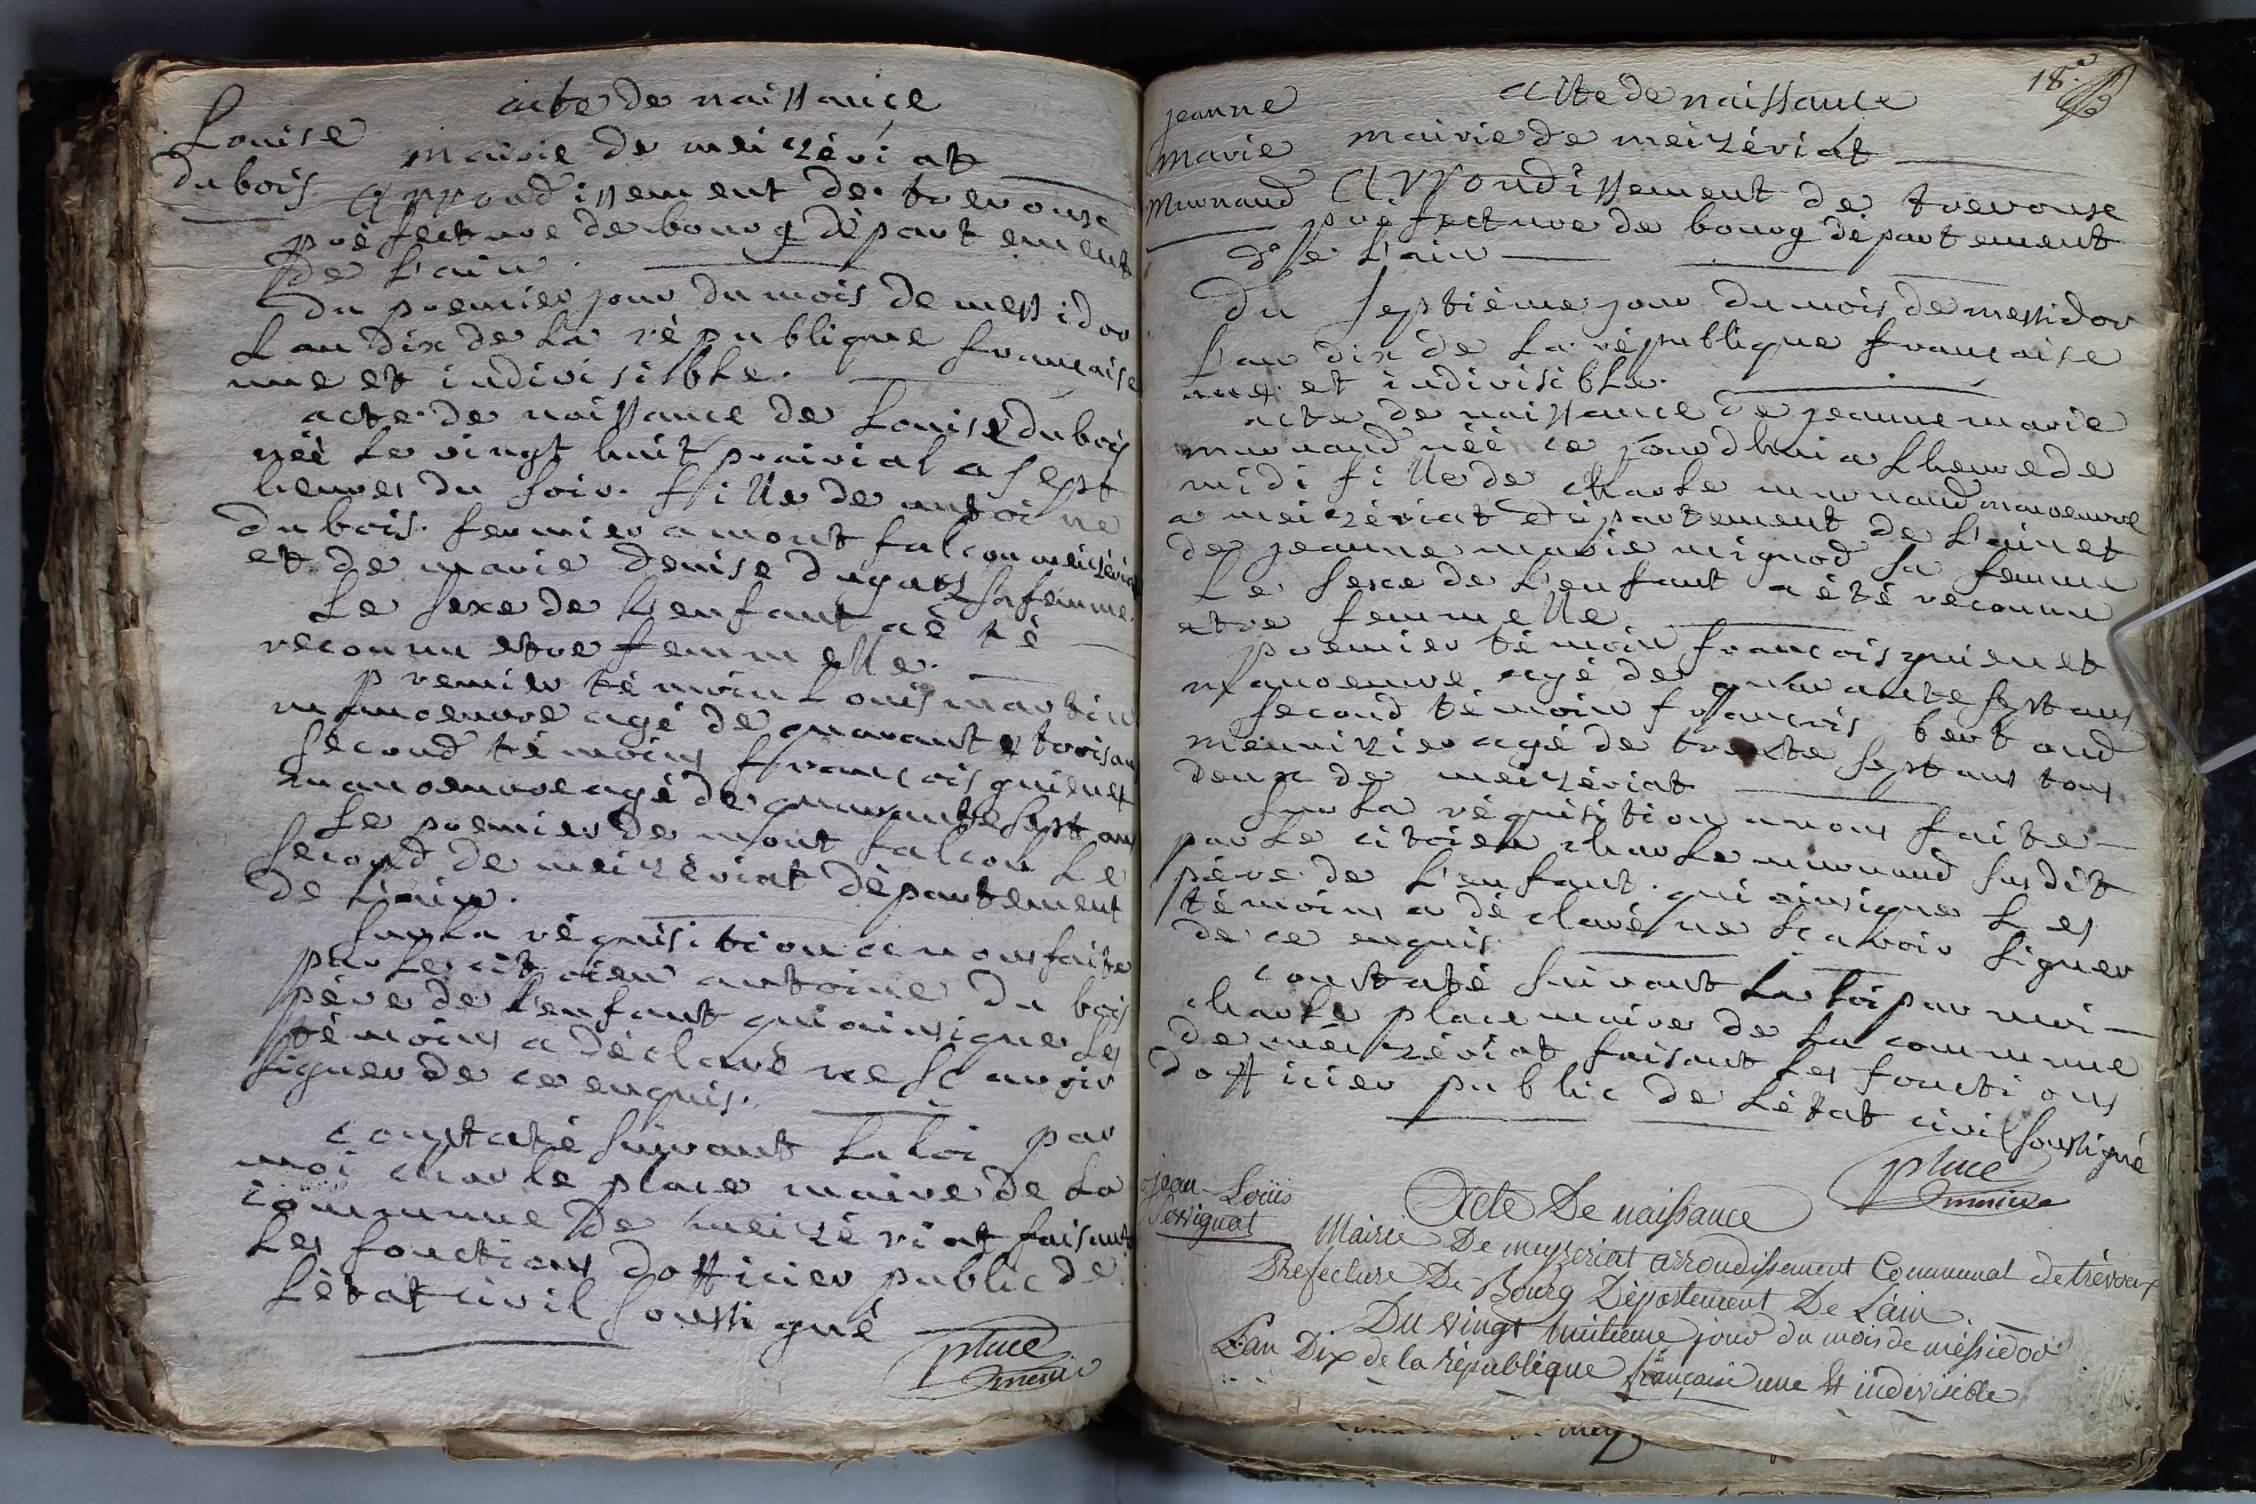 acte de naissance
Louise
dubois
mairie de meizériat
arrondissement de trevouse
préfecture de bourg département
de L'ain.
Du premier jour du mois de messidor
L an dix de La république française
une et indivisible.
acte de naissance de Louise dubois
néé Le vingt huit prairial a sept
heures du soir. fille de antoine
dubois. fermier a mont falcon meizériat
et de marie denise dugats sa femme.
Le sexe de L'enfant aè té
reconnu etre femmelle.
premier témoin Louis martin
manoeuvre agé de quarante trois ans
second témoins françois guienet
manoeuvre agé de quarante sept ans
Le premier de mont falcon Le
second de meizériat département
de L'ain.
sur La réquisition a nous faite
par Le citoien antoine du bois
pére de L'enfant qui ainsigne Les
témoins a déclaré ne sçavoir
signer de ce enquis.
constaté suivant La loi par
moi charle place maire de La
commune de meizériat faisant
Les fonctions dofficier public de
L'état civil soussigné
place
maire
18.e
acte de naissance
jeanne
marie
murnaud
mairie de meizériat
arrondissement de trevouse
préfecture de bourg département
de L'ain
Du septiéme jour du mois de messidor
L'an dix de La république française
une et indivisible.
acte de naissance de jeanne marie
murnaud néé ce jourdhui a Lheure de
midi fille de charle murnaud manoeuvre
a meizériat département de L'ain et
de jeanne marie mignod sa femme
Le sexe de L'enfant a été reconnu
etre femmelle
premier témoin françois guienet
manoeuvre agé de quarante sept ans
second témoin françois bertaud
menuizier agé de trente sept ans tous
deux de meizériat
sur La réquisition a nous faite
par Le citoien charle murnaud susdit
pére de L'enfant. qui ainsigne Les
témoins a déclaré ne sçavoir signer
de ce enquis.
constaté suivant La loi par moi
charle place maire de La commune
de meizériat faisant Les fonctions
dofficier public de L'état civil soussigné
place
maire
jean Loüis
Acte De naissance
Mairie De meyzeriat arrondissement Communal de trévoux
Prefecture De Bourg Département De L'ain.
Du vingt huitieme jour du mois de méssidor
L'an Dix de la république française une et indivisible